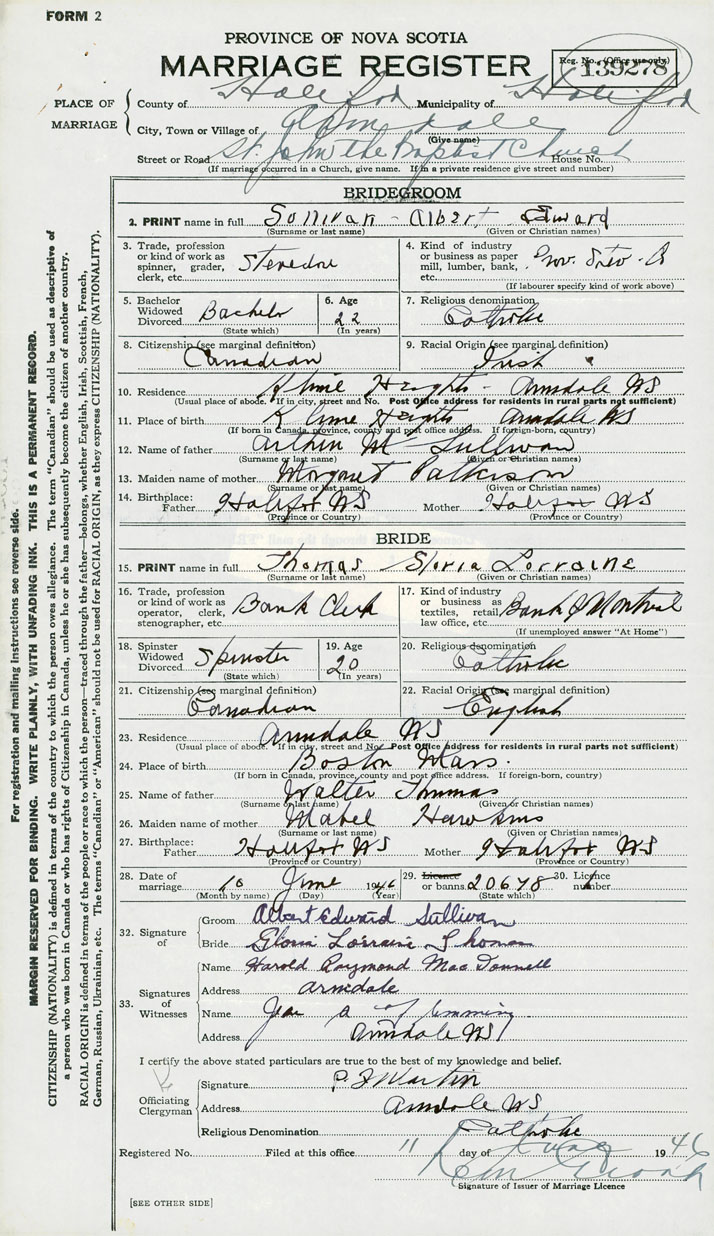 FORM 2
PROVINCE OF NOVA SCOTIA
MARRIAGE REGISTER
Reg. No. (Office use only)
139278
PLACE OF MARRIAGE
County of Halifax Municipality of Halifax
City, Town or Village of Armdale
(Give name)
Street or Road St. John the Baptist Church House No.
(If marriage occurred in a Church, give name. If in a private residence give street and number)
BRIDEGROOM
2. PRINT name in full Sullivan - Albert Edward
(Surname or last name) (Given or Christian names)
3. Trade, profession or kind of work as spinner, grader, clerk, etc. Stevedore
4. Kind of industry or business as paper mill, lumber, bank, etc.
(If labourer specify kind of work above)
5. Bachelor Widowed Divorced Bachelor
(State which)
6. Age 22
(In years)
7. Religious denomination Catholic
8. Citizenship (see marginal definition) Canadian
9. Racial Origin (see marginal definition) Irish
10. Residence Kline Heights - Armdale NS
(Usual place of abode. If in city, street and No. Post Office address for residents in rural parts not sufficient)
11. Place of birth Kline Heights Armdale NS
(If born in Canada, province, county and post office address. If foreign-born, country)
12. Name of father Sullivan
(Surname or last name) (Given or Christian names)
13. Maiden name of mother Margaret
(Surname or last name) (Given or Christian names)
14. Birthplace: Father Halifax NS Mother Halifax NS
(Province or Country) (Province or Country)
BRIDE
15. PRINT name in full Thomas Gloria Lorraine
(Surname or last name) (Given or Christian names)
16. Trade, profession or kind of work as operator, clerk, stenographer, etc. Bank Clerk
17. Kind of industry or business as textiles, retail, law office, etc. Bank of Montreal
(If unemployed answer "At Home")
18. Spinster Widowed Divorced Spinster
(State which)
19. Age 20
(In years)
20. Religious denomination Catholic
21. Citizenship (see marginal definition) Canadian
22. Racial Origin (see marginal definition) English
23. Residence Armdale NS
(Usual place of abode. If in city, street and No. Post Office address for residents in rural parts not sufficient)
24. Place of birth Boston Mass.
(If born in Canada, province, county and post office address. If foreign-born, country)
25. Name of father Walter Thomas
(Surname or last name) (Given or Christian names)
26. Maiden name of mother Mabel Hawkins
(Surname or last name) (Given or Christian names)
27. Birthplace: Father Halifax NS Mother Halifax NS
(Province or Country) (Province or Country)
28. Date of marriage 10 June 1946
(Month by name) (Day) (Year)
29. Licence or banns 20678
(State which)
30. Licence number
32. Signature of
Groom Albert Edward Sullivan
Bride Gloria Lorraine Thomas
33. Signatures of Witnesses
Name Harold Raymond MacDonnell
Address Armdale
Name Jean A
Address Armdale NS
I certify the above stated particulars are true to the best of my knowledge and belief.
Officiating Clergyman
Signature Martin
Address Armdale NS
Religious Denomination Catholic
Registered No. Filed at this office 11 day of 1946
Signature of Issuer of Marriage Licence
[SEE OTHER SIDE]
For registration and mailing instructions see reverse side.
MARGIN RESERVED FOR BINDING. WRITE PLAINLY, WITH UNFADING INK. THIS IS A PERMANENT RECORD.
CITIZENSHIP (NATIONALITY) is defined in terms of the country to which the person owes allegiance. The term "Canadian" should be used as descriptive of
a person who was born in Canada or who has rights of Citizenship in Canada, unless he or she has subsequently become the citizen of another country.
RACIAL ORIGIN is defined in terms of the people or race to which the person—traced through the father—belongs, whether English, Irish, Scottish, French,
German, Russian, Ukrainian, etc. The terms "Canadian" or "American" should not be used for RACIAL ORIGIN, as they express CITIZENSHIP (NATIONALITY).